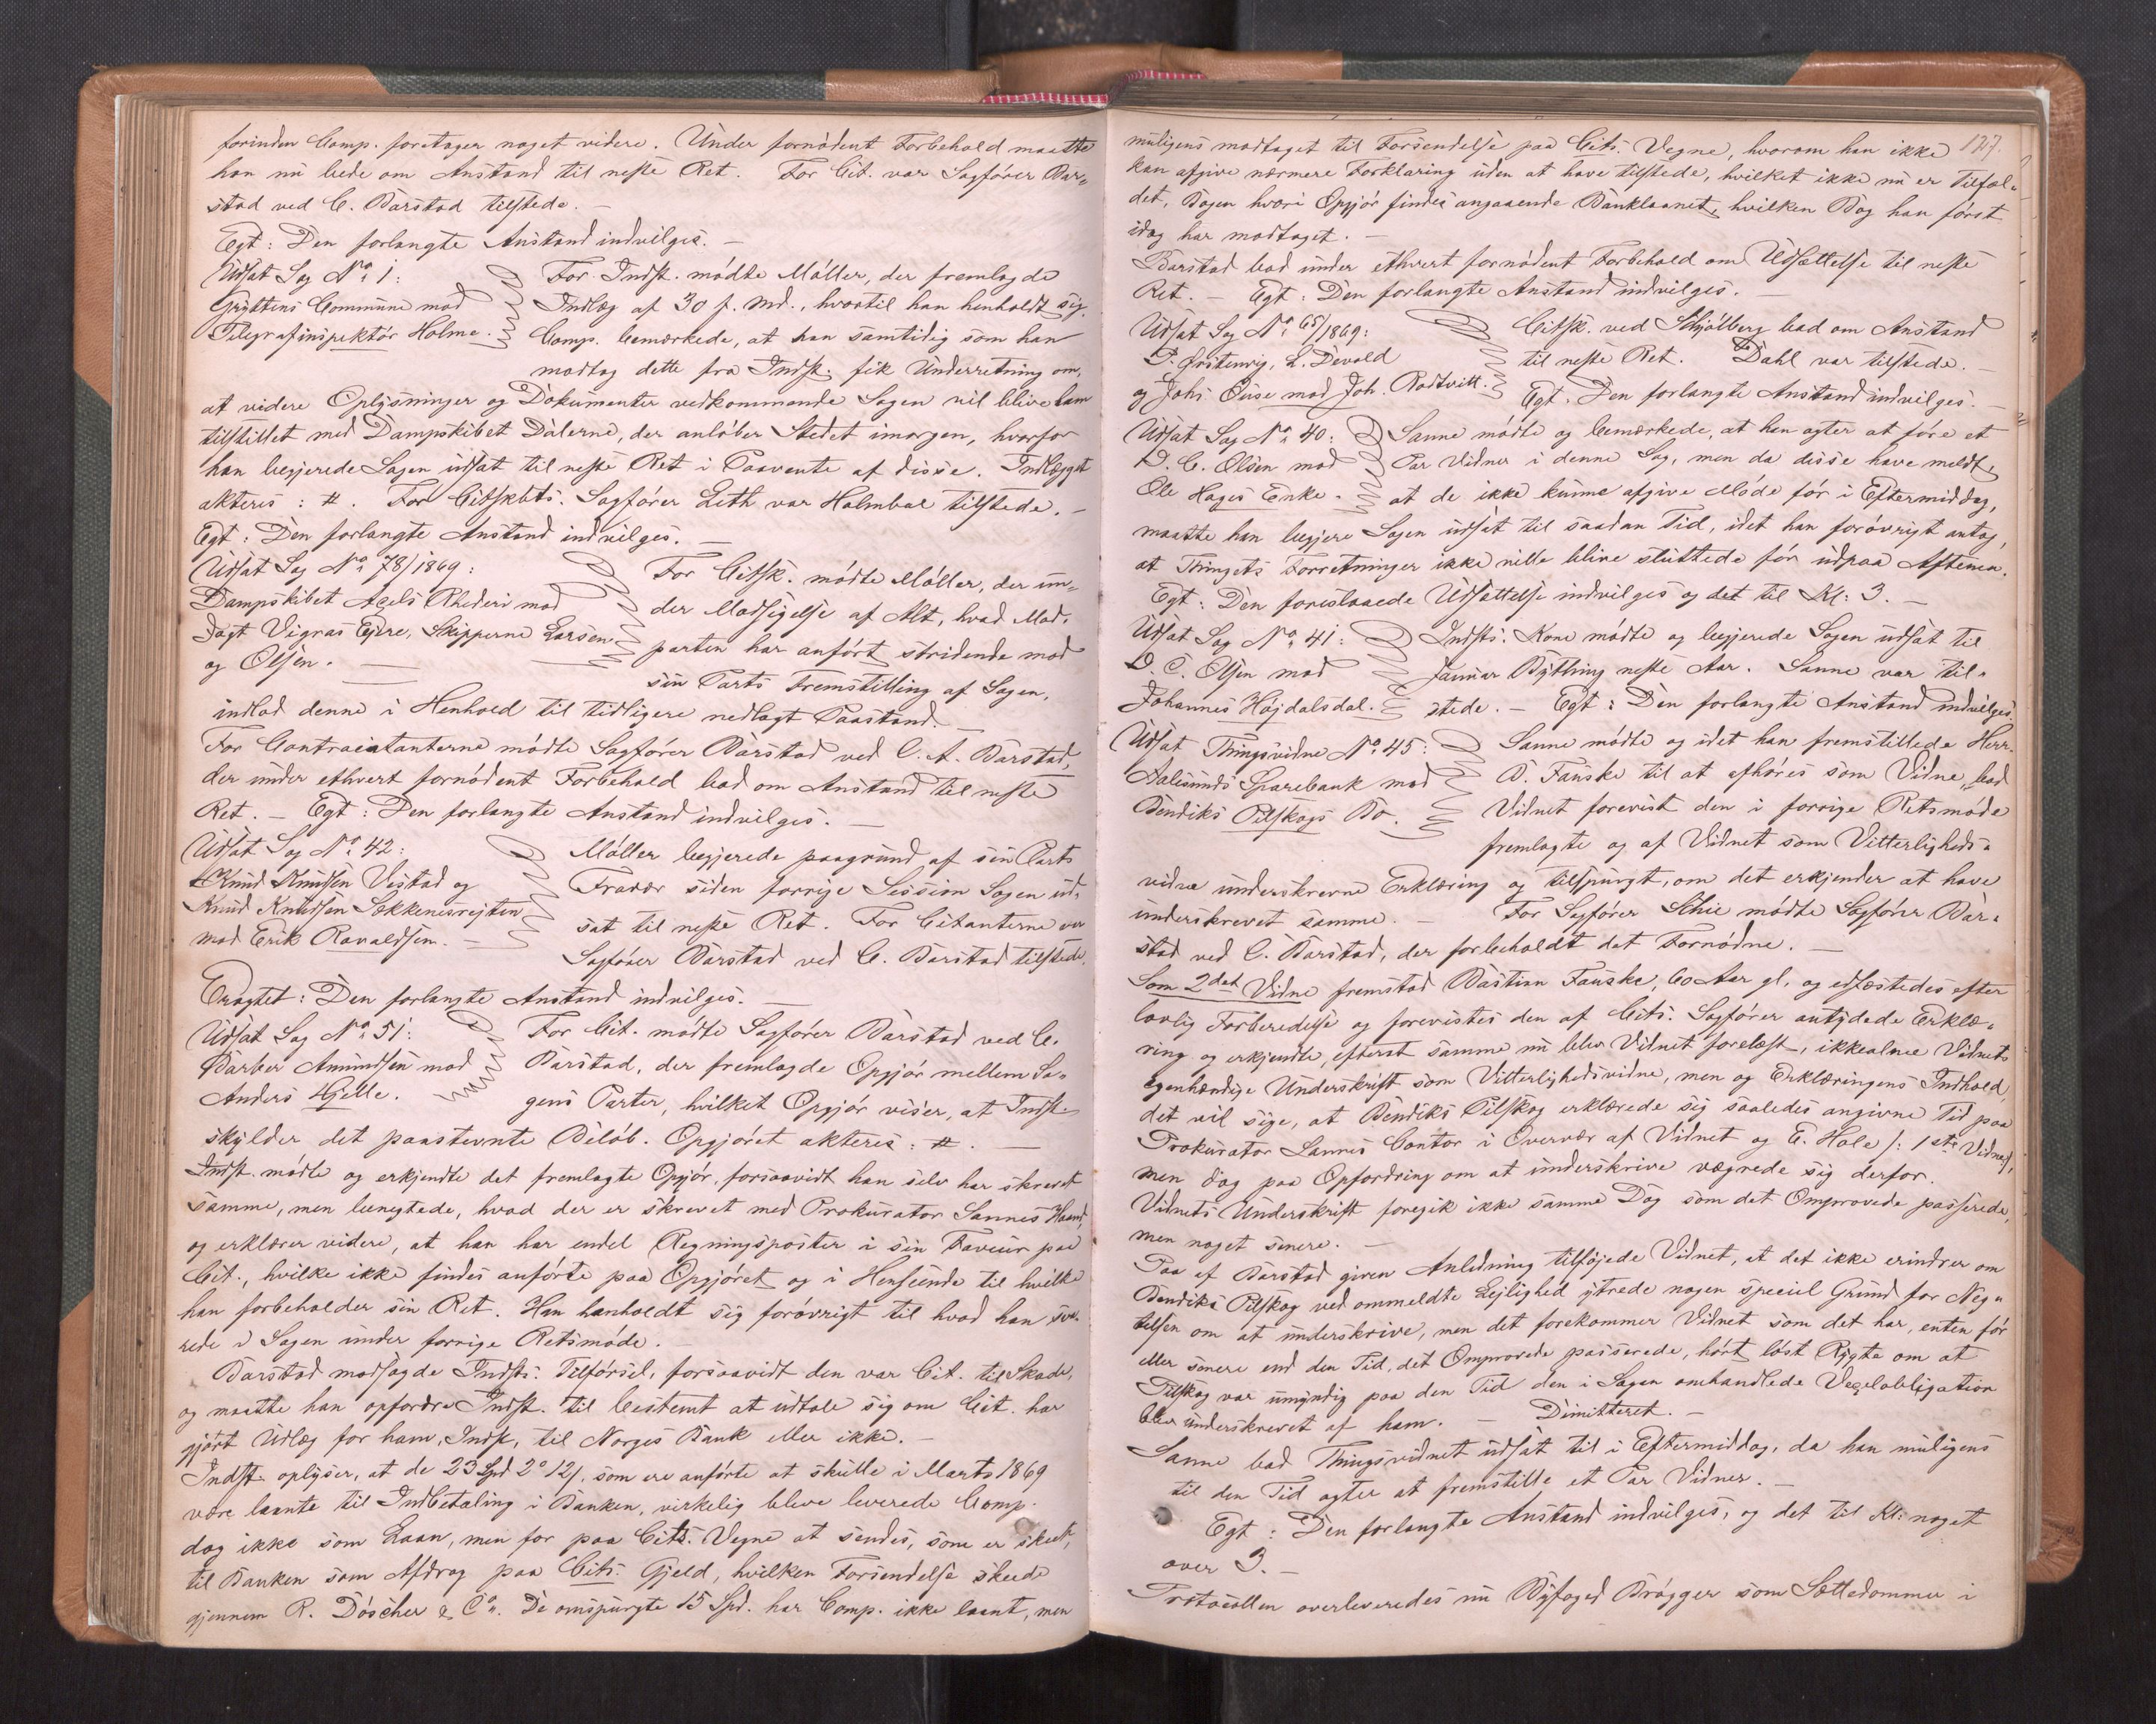 forinden Comp. foretager noget videre. Under fornødent Forbehold maatte
han nu bede om Anstand til neste Ret. For Cit. var Sagfører Bar-
stad ved C. Barstad tilstede. –
Egt: Den forlangte Anstand indvilges. –
Udsat Sag No. 1:
Gryttens Commune mod
Telegrafinspektør Holme.
For Indst. mødte Møller, der fremlagde
Indlæg af 30 f. Md., hvortil han henholdt sig.
Comp. bemærkede, at han samtidig som han
modtog dette fra Indst. fik Underretning om,
at videre Oplysninger og Dokumenter vedkommende Sagen vil blive ham
tilstillet med Dampskibet Dalerne, der anløber Stedet imorgen, hvorfor
han begjerede Sagen udsat til neste Ret i Paavente af disse. Indlægget
akteres: #. For Citskbts. Sagfører Leth var Holmboe tilstede. –
Egt: Den forlangte Anstand indvilges. –
Udsat Sag No. 78/1869:
Dampskibet Axels Rhederi mod
Jagt Vigras Ejere, Skipperne Larsen
og Olsen. –
For Citsk. mødte Møller, der un-
der Modsigelse af Alt, hvad Mod-
parten har anført stridende mod
sin Parts Fremstilling af Sagen,
indlod denne i Henhold til tidligere nedlagt Paastand. –
For Contracitanterne mødte Sagfører Barstad ved C. A. Barstad,
der under ethvert fornødent Forbehold bad om Anstand til neste
Ret. – Egt: Den forlangte Anstand indvilges. –
Udsat Sag No. 42:
Knud Knudsen Vistad og
Knud Knudsen Sekkenesrejten
mod Erik Ravaldsen. –
Møller begjerede paagrund af sin Parts
Fravær siden forrige Session Sagen ud-
sat til neste Ret. For Citanterne var
Sagfører Barstad ved C. Barstad tilstede.
Eragtet: Den forlangte Anstand indvilges. –
Udsat Sag No. 51:
Barber Amundsen mod
Anders Hjelle.
For Cit. mødte Sagfører Barstad ved C.
Barstad, der fremlagde Opgjør mellem Sa-
gens Parter, hvilket Opgjør viser, at Indst.
skylder det paastevnte Beløb. Opgjøret akteres: #. –
Indst. mødte og erkjendte det fremlagte Opgjør, forsaavidt han selv har skrevet
samme, men benegtede, hvad der er skrevet med Prokurator Sannes Haand,
og erklærer videre, at han har endel Regningsposter i sin Faveur paa
Cit., hvilke ikke findes anførte paa Opgjøret og i Henseende til hvilke
han forbeholder sin Ret. Han henholdt sig forøvrigt til hvad han sva-
rede i Sagen under forrige Retsmøde. –
Barstad modsagde Indsts. Tilførsel, forsaavidt den var Cit. til Skade,
og maatte han opfordre Indst. til bestemt at udtale sig om Cit. har
gjort Udlæg for ham, Indst., til Norges Bank eller ikke. –
Indst. oplyser, at de 23 Spd 2° 12 s. som ere anførte at skulle i Marts 1869
være laante til Indbetaling i Banken, virkelig bleve leverede Comp.
dog ikke som Laan, men for paa Cits. Vegne at sendes, som er skeet,
til Banken som Afdrag paa Cits. Gjeld, hvilken Forsendelse skeede
gjennem R. Döscher & Co. De omspurgte 15 Spd. har Comp. ikke laant, men
127.
muligens modtaget til Forsendelse paa Cits. Vegne, hvorom han ikke
kan afgive nærmere Forklaring uden at have tilstede, hvilket ikke nu er Tilfæl-
det, Bogen hvori Opgjør findes angaaende Banklaanet, hvilken Bog han først
idag har modtaget. –
Barstad bad under ethvert fornødent Forbehold om Udsættelse til neste
Ret. – Egt: Den forlangte Anstand indvilges. –
Udsat Sag No. 65/1869:
L. Devold
mod Joh. Rodtvitt.
Citsk. ved Schjølberg bad om Anstand
til neste Ret. Dahl var tilstede. –
Egt. Den forlangte Anstand indvilges. –
Udsat Sag No. 40:
D. C. Olsen mod
Ole Hages Enke.
Sanne mødte og bemærkede, at han agter at føre et
Par Vidner i denne Sag, men da disse have meldt,
at de ikke kunne afgive Møde før i Eftermiddag,
maatte han begjere Sagen udsat til saadan Tid, idet han forøvrigt antog,
at Thingets Forretninger ikke ville blive sluttede før udpaa Aftenen.
Egt: Den foreslaaede Udsættelse indvilges og det til Kl: 3. –
Udsat Sag No. 41:
D. C. Olsen mod
Johannes Højdalsdal.
Indsts. Kone mødte og begjerede Sagen udsat til
Januar Bything neste Aar. Sanne var til-
stede. – Egt: Den forlangte Anstand indvilges.
Udsat Thingsvidne No. 45:
Aalesunds Sparebank mod
Bendiks Pilskogs Bo.
Sanne mødte og idet han fremstillede Herr
B. Fauske til at afhøres som Vidne, bad
Vidnet forevist den i forrige Retsmøde
fremlagte og af Vidnet som Vitterligheds-
vidne underskrevne Erklæring og tilspurgt, om det erkjender at have
underskrevet samme. – For Sagfører Schie mødte Sagfører Bar-
stad ved C. Barstad, der forbeholdt det Fornødne. –
Som 2det Vidne fremstod Bastian Fauske, 60 Aar gl. og edfæstedes efter
lovlig Forberedelse og forevistes den af Cits. Sagfører antydede Erklæ-
ring og erkjendte, efterat samme nu blev Vidnet forelæst, ikkealene Vidnets
egenhændige Underskrift som Vitterlighedsvidne, men og Erklæringens Indhold,
det vil sige, at Bendiks Pilskog erklærede sig saaledes angivne Tid paa
Prokurator Sannes Contor i Overvær af Vidnet og E. Hole /: 1ste Vidne/,
men dog paa Opfordring om at underskrive vægrede sig derfor.
Vidnets Underskrift foregik ikke samme Dag som det Omprovede passerede,
men noget senere. –
Paa af Barstad given Anledning tilføjede Vidnet, at det ikke erindrer om
Bendiks Pilskog ved ommeldte Lejlighed ytrede nogen speciel Grund for Neg-
telsen om at underskrive, men det forekommer Vidnet som det har, enten før
eller senere end den Tid, det Omprovede passerede, hørt løst Rygte om at
Pilskog var umyndig paa den Tid den i Sagen omhandlede Vexelobligation
blev underskrevet af ham. – Dimitteret. –
Sanne bad Thingsvidnet udsat til i Eftermiddag, da han muligens
til den Tid agter at fremstille et Par Vidner. –
Egt: Den forlangte Anstand indvilges, og det til Kl: noget
over 3. –
Protocollen overleveredes nu Byfoged Brøgger som Sættedommer i